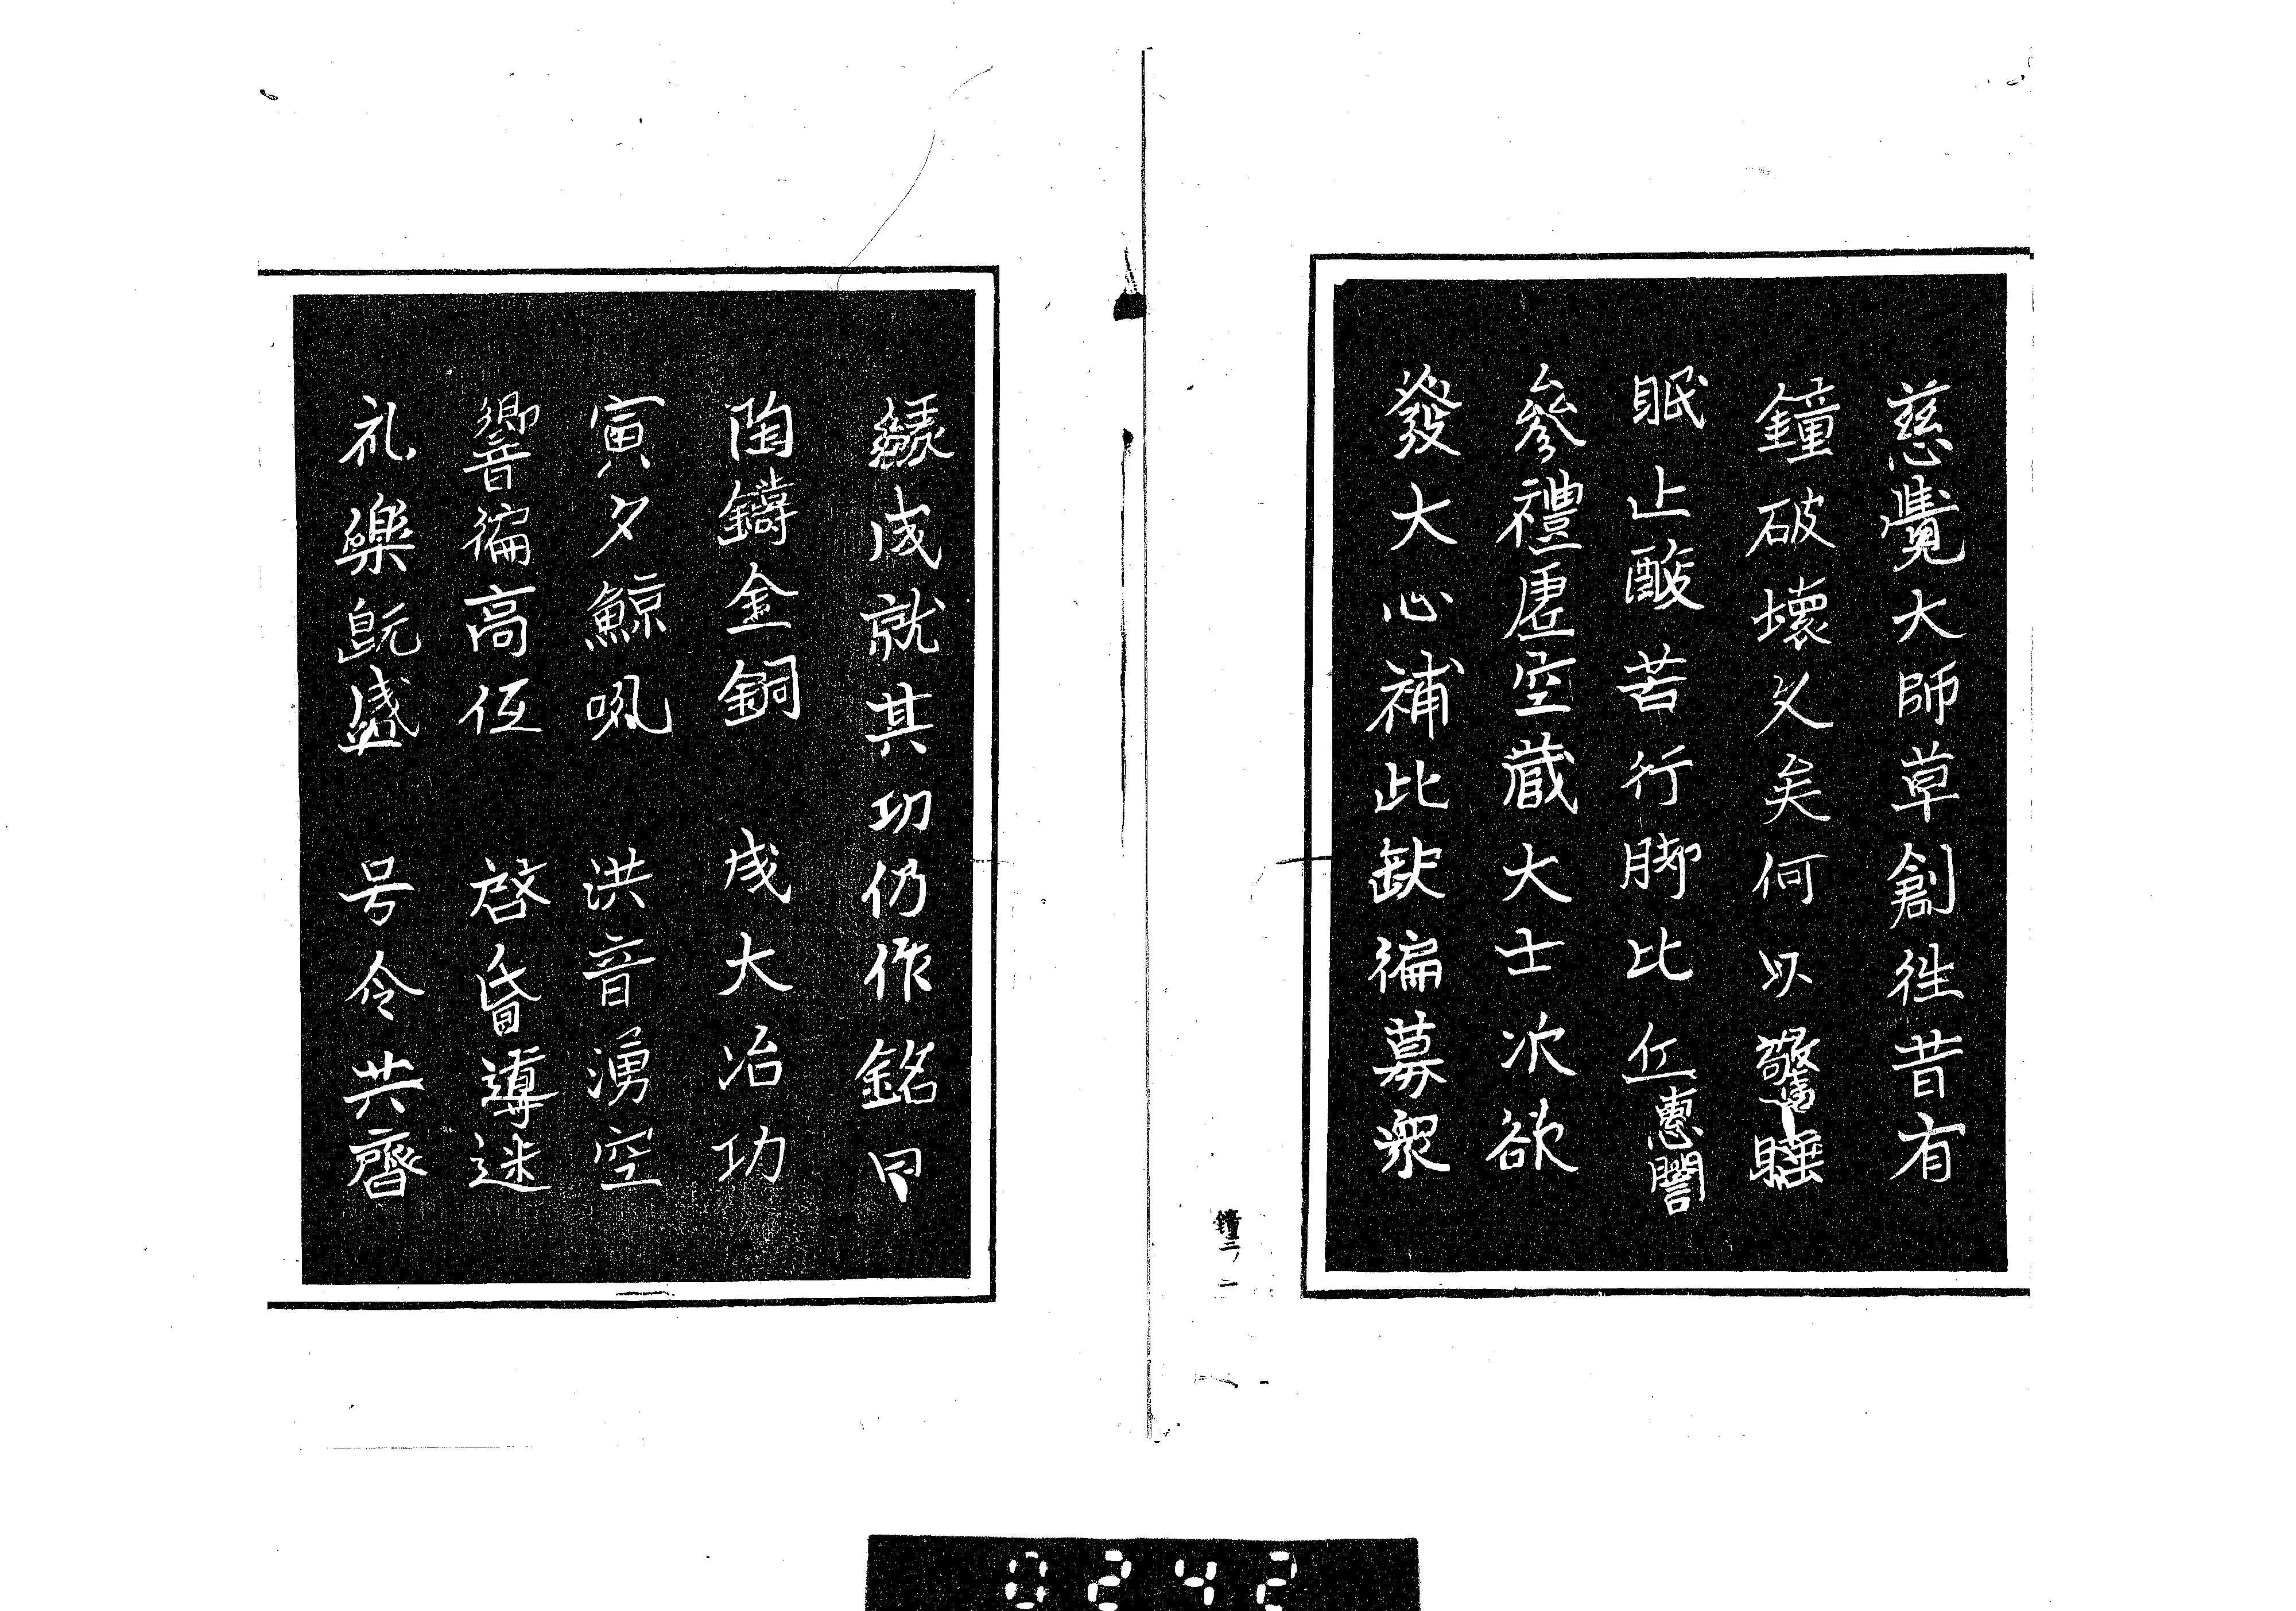 慈覺大師草創徃昔有
鐘破壞久矣何以驚睡
眠止酸苦行脚比丘惠誾
參禮虛空蔵大士次欲
發大心補此缺徧募衆
縁成就其功仍作銘曰
陶鑄金銅 成大冶功
寅夕鯨吼 洪音湧空
響徧高低 啓昏導迷
礼樂既盛 号令共齊
鐘二ノ二
0242